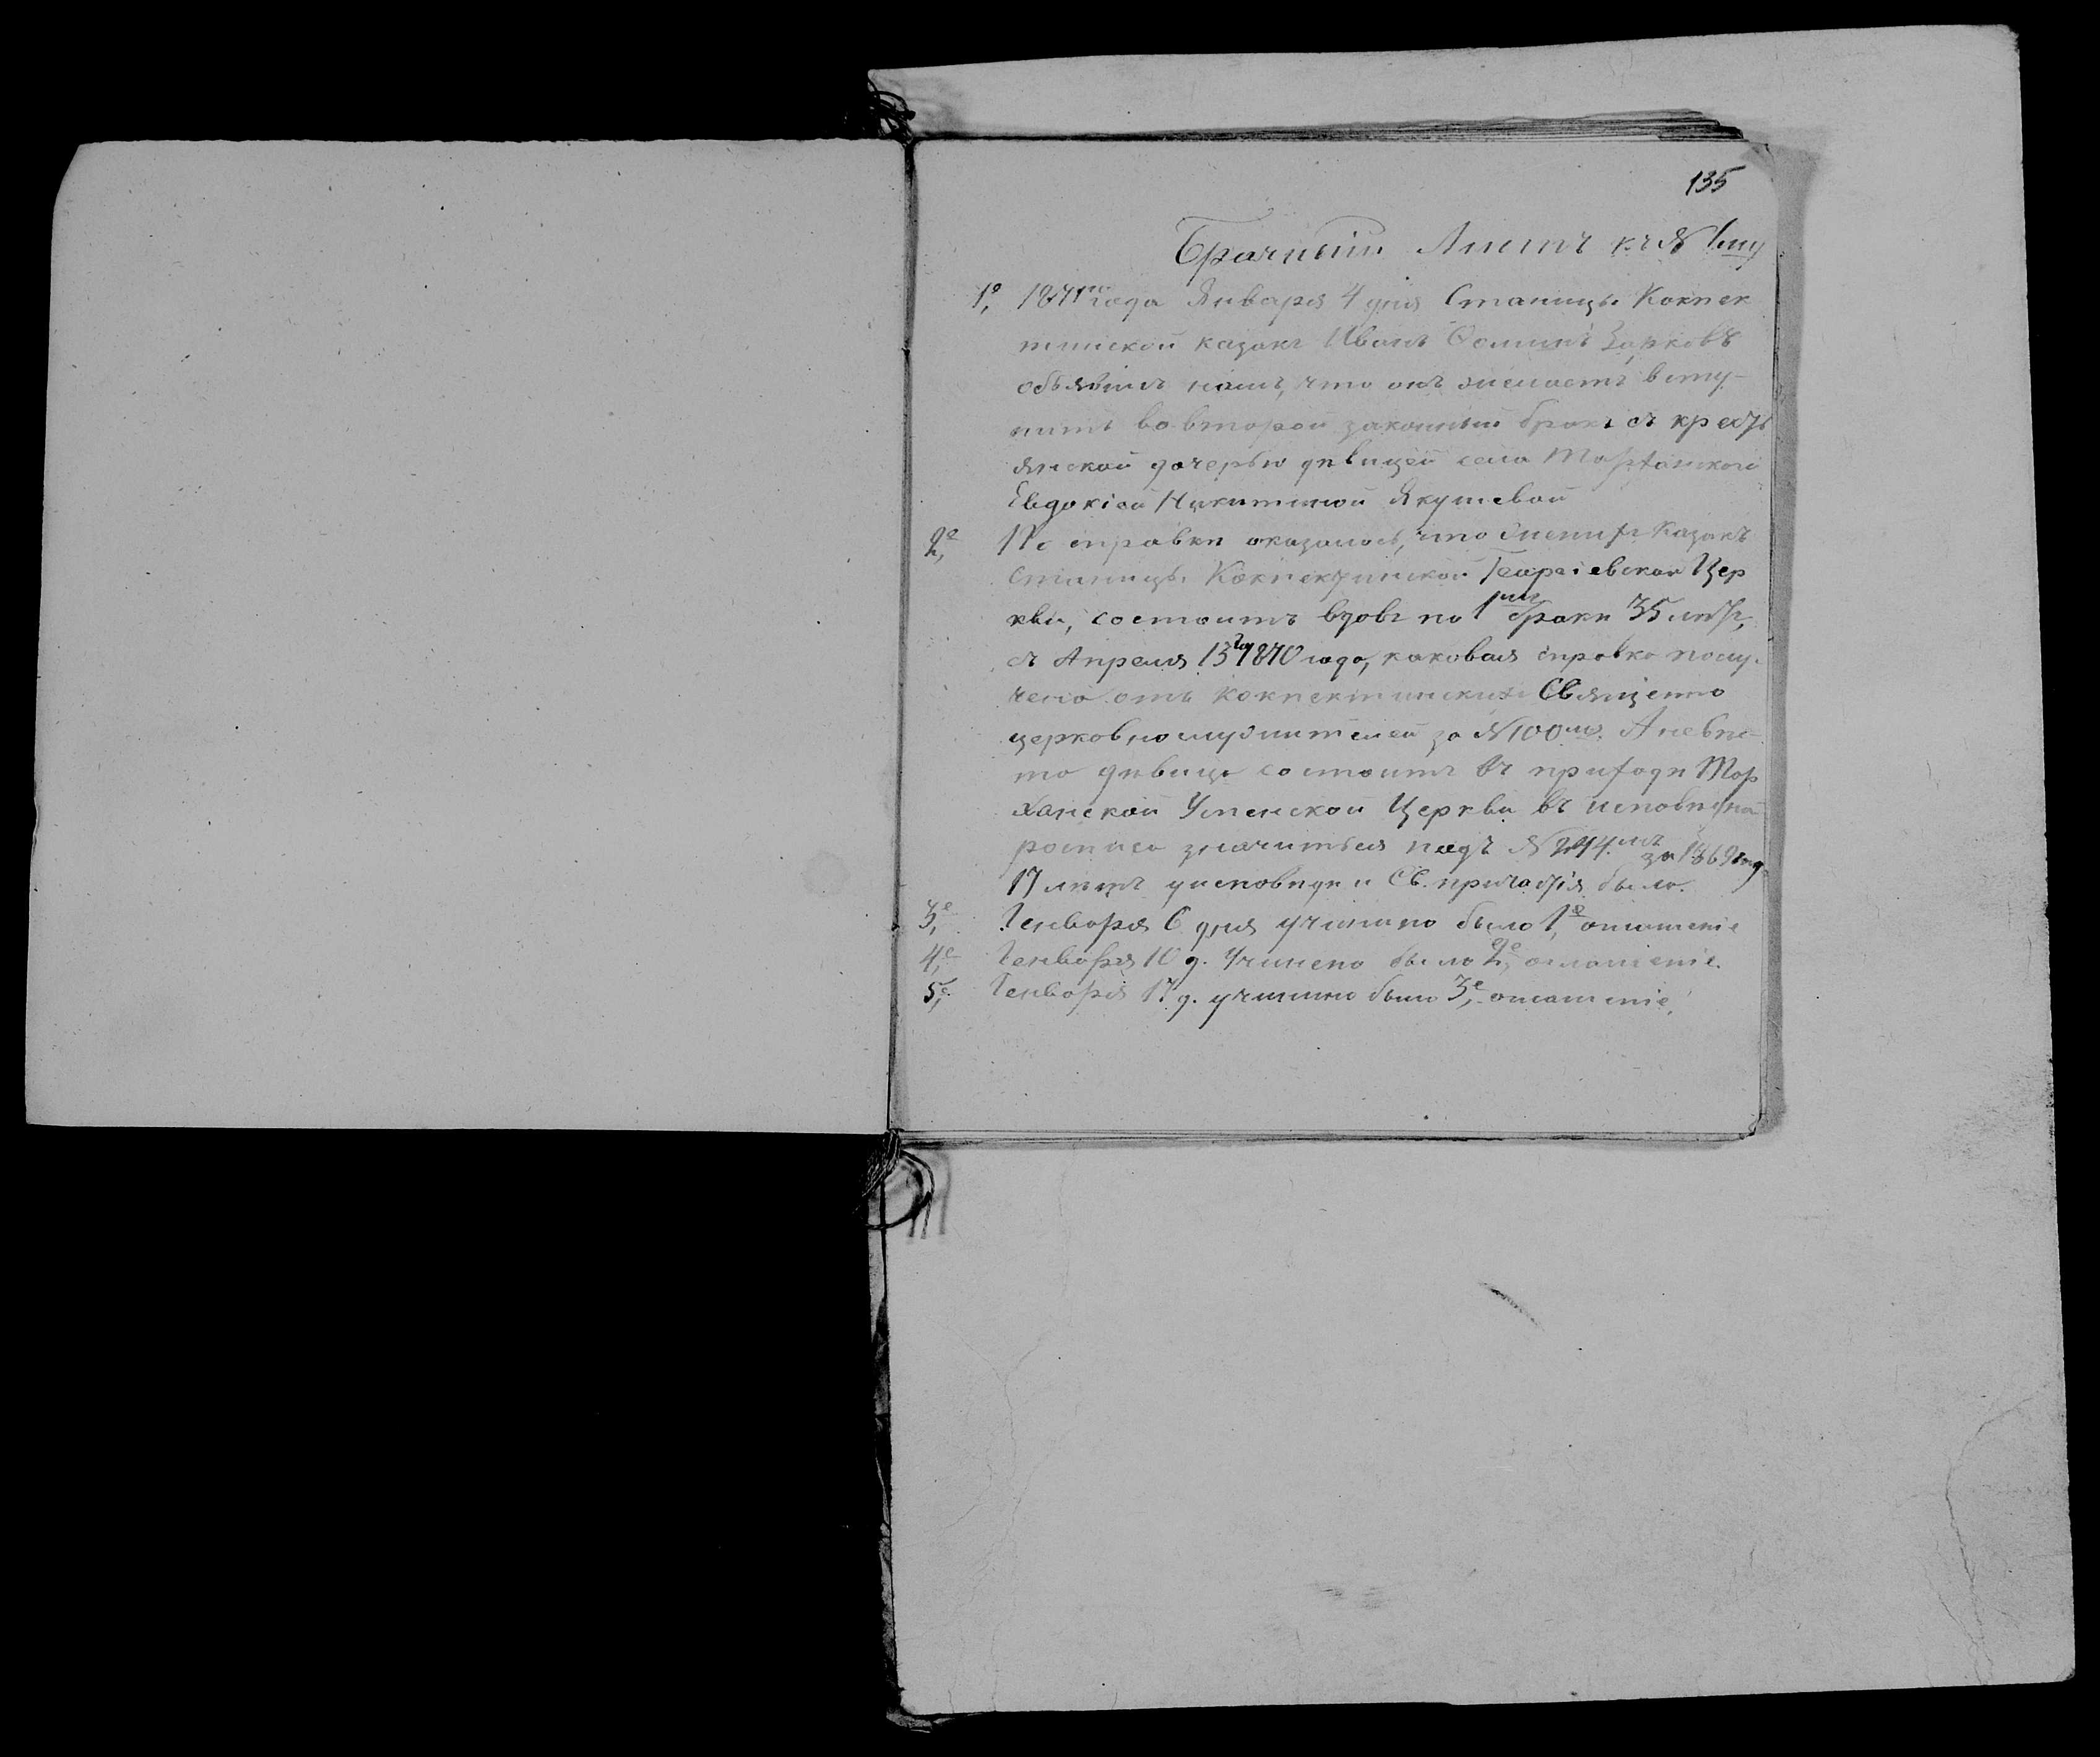 135
Брачный Листъ къ № 1му
1е, 1871го года Января 4 дня Станицы Кокпек
тинской казакъ Иванъ Ѳоминъ Зарковъ
объявилъ намъ, что онъ желаетъ всту-
пить во второй законный бракъ съ кресть
янской дочерью дѣвицей села Тарханского
Евдокіей Никитиной Якушевой
2е, По справкѣ оказалось, что женихъ казакъ
станицы Кокпектинской Георгіевской Цер
кви, состоитъ вдовъ по 1мъ бракѣ 35 лѣтъ,
съ Апреля 13го 1870 года, каковая справка полу-
чена отъ Кокпектинскихъ Священно
церковнослужителей за № 100мъ. А невѣс-
та дѣвица состоитъ въ приходѣ Тар
ханской Успенской Церкви въ исповѣдной
росписи значиться подъ № за 1869 год
17 лѣтъ у исповѣди и Св. причастія была.
3е, Генваря 6 дня учинено было 1е, оглашеніе
4е, Генваря 10 д. Учинено было 2е, оглашеніе.
5,е Генваря 17 д. учинено было 3е, оглашеніе.